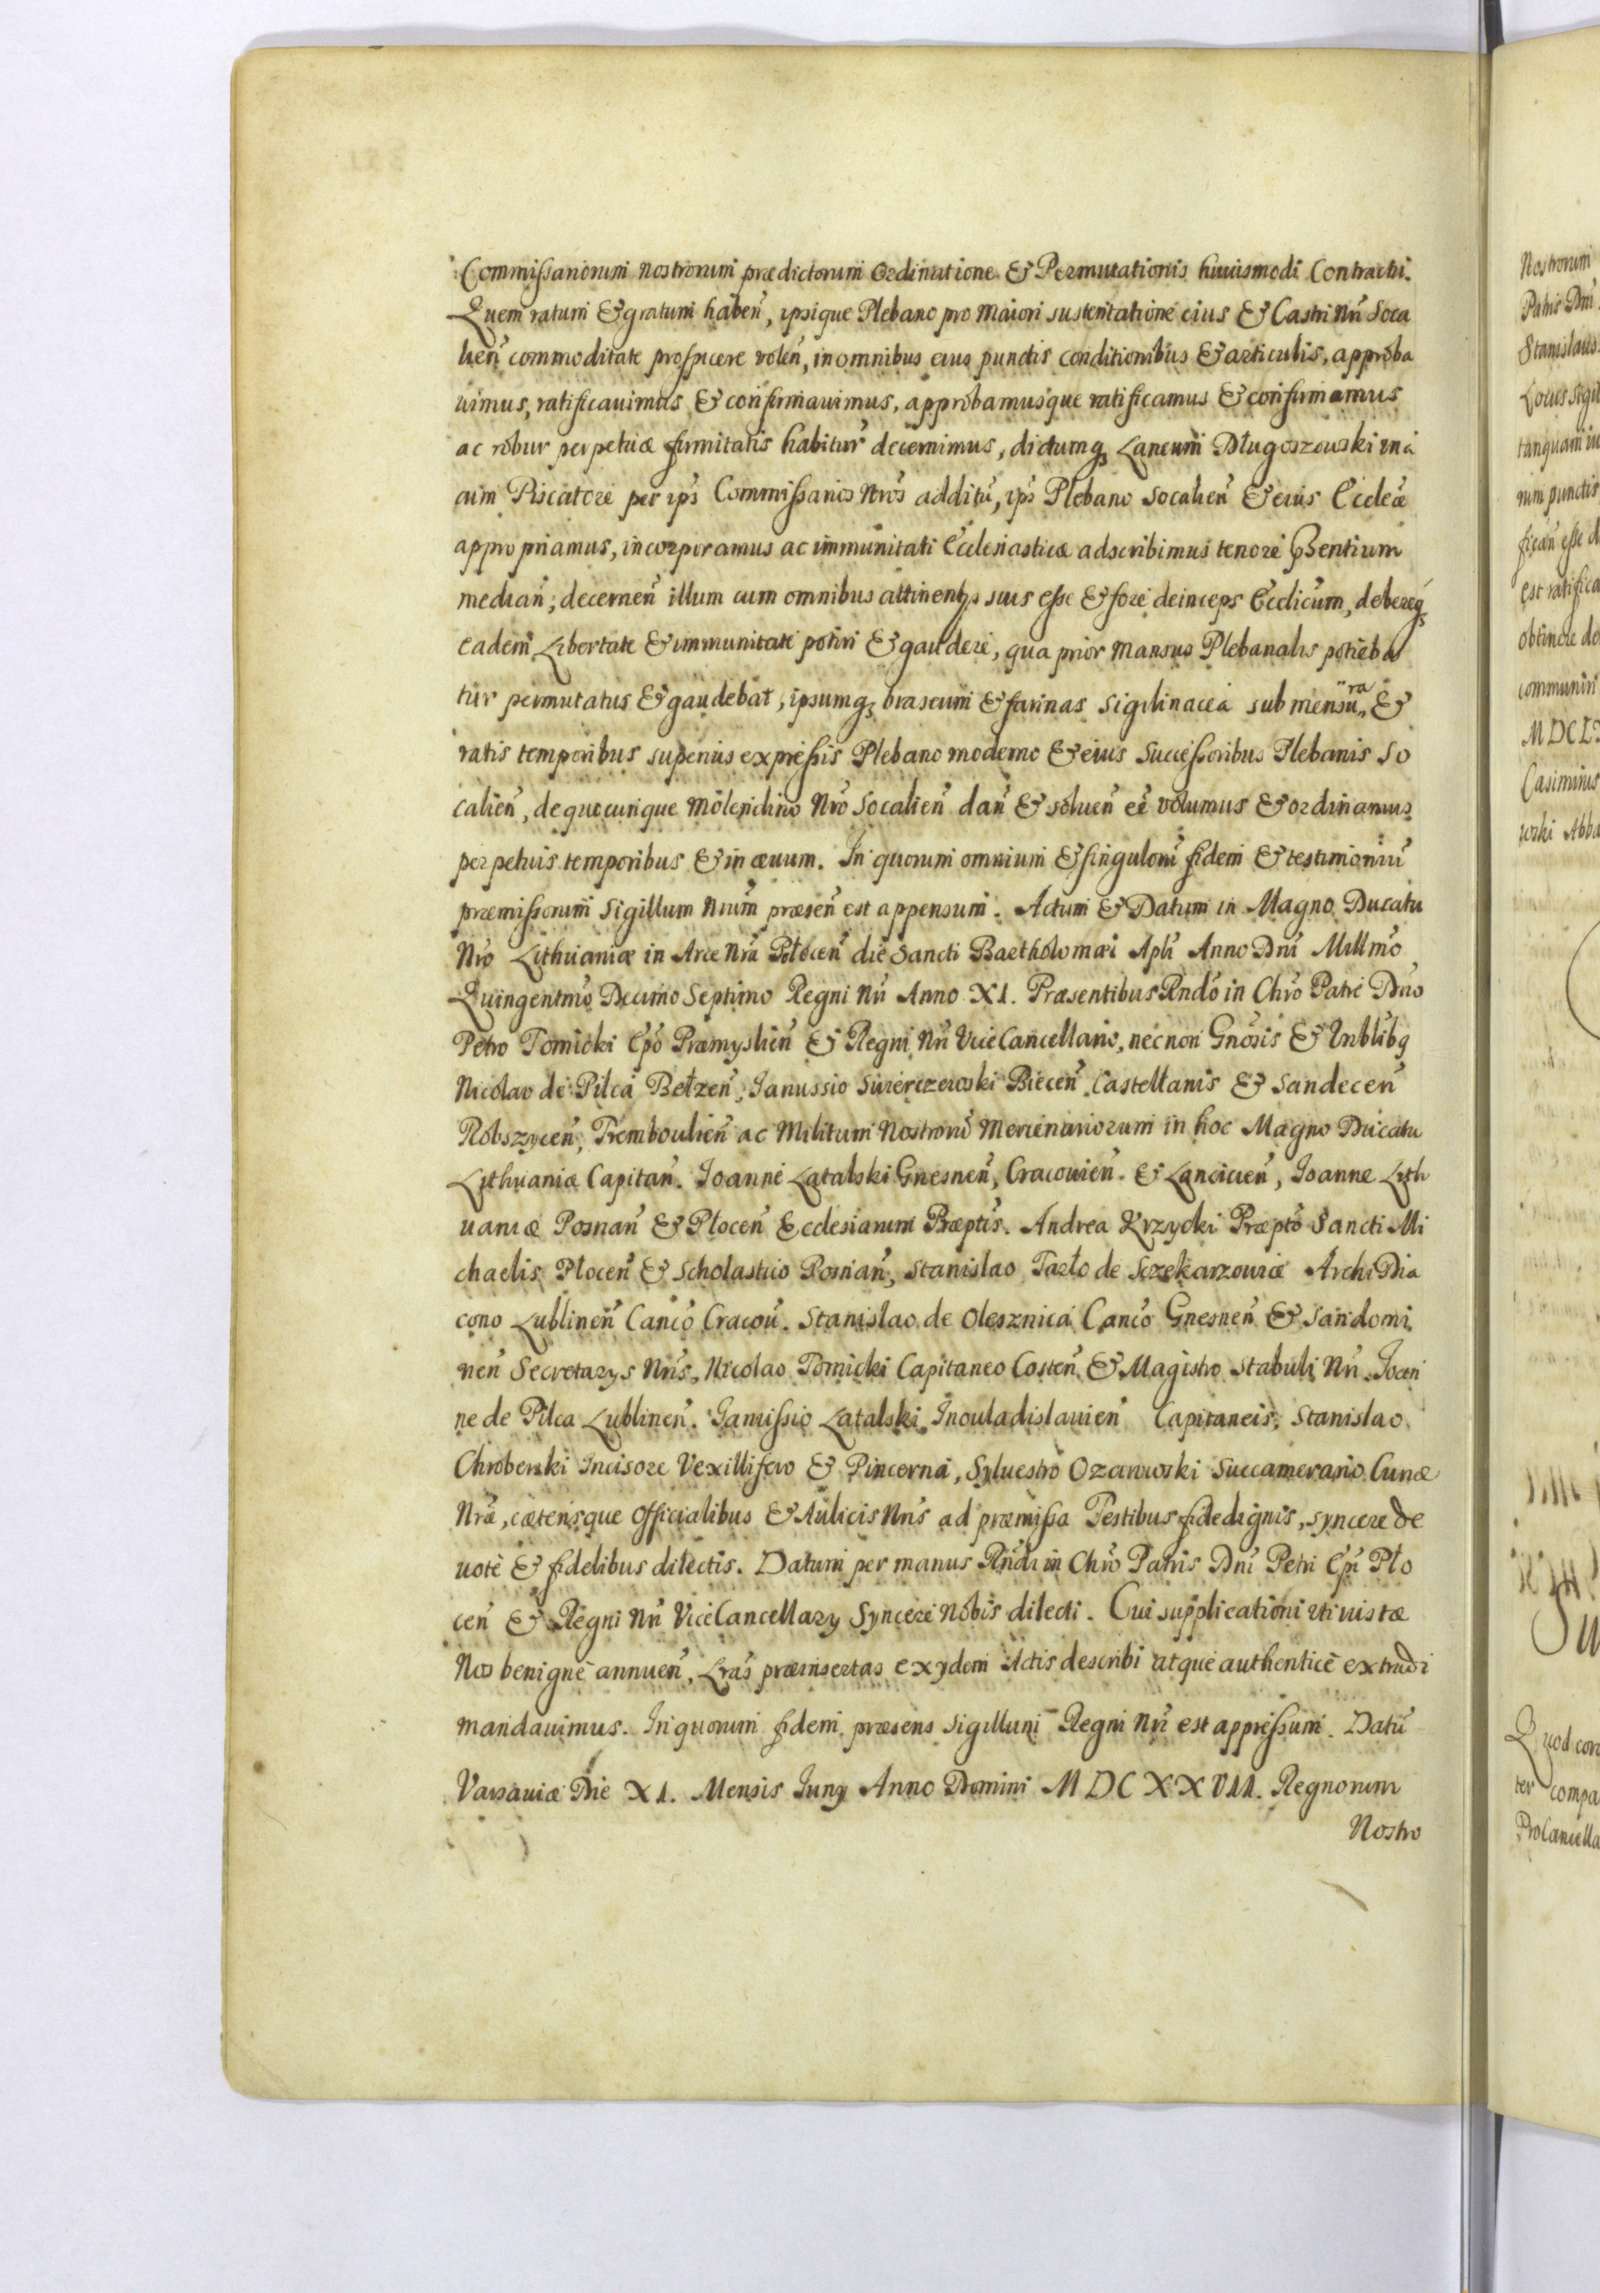 Commissariorum nostrorum prædictorum ordinatione & Permutationis huiusmodi Contractui.
Quem ratum & gratum haben̄, ipsique Plebano pro maiori sustentatione eius & Castri Nrī Soca
lien̄ commoditate prospicere volen̄, in omnibus eius punctis conditionibus & articulis, approba
uimus, ratificauimus & confirmauimus, approbamusque ratificamus & confirmamus
ac robur perpetuæ firmitatis habitur̄ decernimus, dictumq₃ Laneum Długoszowski una
cum Piscatore per ips̄ Commissarios Nros̄ additū, ips̄ Plebano Socalien̄ & eius Eccleǣ
appropriamus, incorporamus ac immunitati Ecclesiasticæ adscribimus tenore p̄sentium
median̄; decernen̄ illum cum omnibus attinentys suis esse & fore deinceps Ecclicūm, debereq₃
eadem Libertate & immunitate potiri & gaudere, qua prior Mansus Plebanalis potieba
tur permutatus & gaudebat, ipsumq₃ braseum & farinas sigilinacea sub mensura &
ratis temporibus superius expressis Plebano moderno & eius Successoribus Plebanis So
calien̄, de quocunque molendino Nrō Socalien̄ dan̄ & soluen̄ eē volumus & ordinamus
perpetuis temporibus & in æuum. In quorum omnium & singulorū fidem & testimoniū
præmissorum Sigillum Nrum̄ præsen̄ est appensum. Actum & Datum in Magno Ducatu
Nrō Lithuaniæ in Arce Nrā Płocen̄ die Sancti Bartholomæi Apłi Anno Dnī Millmō
Quingentmō Decimo Septimo Regni Nrī Anno XI. Præsentibus Rndō in Chrō Patre Dnō
Petro Tomicki Epō Præmyslien̄ & Regni Nrī ViceCancellario, necnon Gnosis̄ & Vnblibq̄
Nicolao de Pilca Bełzen̄, Janussio Swierczewski Biecen̄ Castellanis & Sandecen̄
Robszycen̄, Tremboulien̄ ac Militum Nostrorū Mercenariorum in hoc Magno Ducatu
Lithuaniæ Capitan̄. Joanne Latalski Gnesnen̄, Cracouien̄. & Lancicien̄, Joanne Lith
uaniæ Posnan̄ & Plocen̄ Ecclesiarum Præptis̄. Andrea Krzycki Præptō Sancti Mi
chaelis Plocen̄ & Scholastico Posnan̄, Stanislao Tarło de Sczekarzowice ArchiDia
cono Lublinen̄ Cancō Cracou̅. Stanislao de Olesznica Cancō Gnesnen̄ & Sandomi
rien̄ Secretarys Nrīs, Nicolao Tomicki Capitaneo Costen̄ & Magistro Stabuli Nrī. Joan
ne de Pilca Lublinen̄. Janussio Latalski Inouladislauien̄ Capitaneis, Stanislao
Chroberski Incisore Vexillifero & Pincerna, Syluestro Ozarowski Succamerario Curiæ
Nrǣ, cæterisque Officialibus & Aulicis Nrīs ad præmissa Testibus fidedignis, syncere de
uote & fidelibus dilectis. Datum per manus Rndī in Chrō Patris Dnī Petri Epī Pło
cen̄ & Regni Nrī ViceCancellary Syncere Nobis dilecti. Cui supplicationi uti iustæ
Nos benigne annuen̄, Lrās præinsertas exydem Actis describi atque authentice extradi
mandauimus. In quorum fidem præsens Sigillum Regni Nrī est appressum. Datū
Varsauiæ Die XI. Mensis Juny Anno Domini MDCXXVII. Regnorum
Nostro